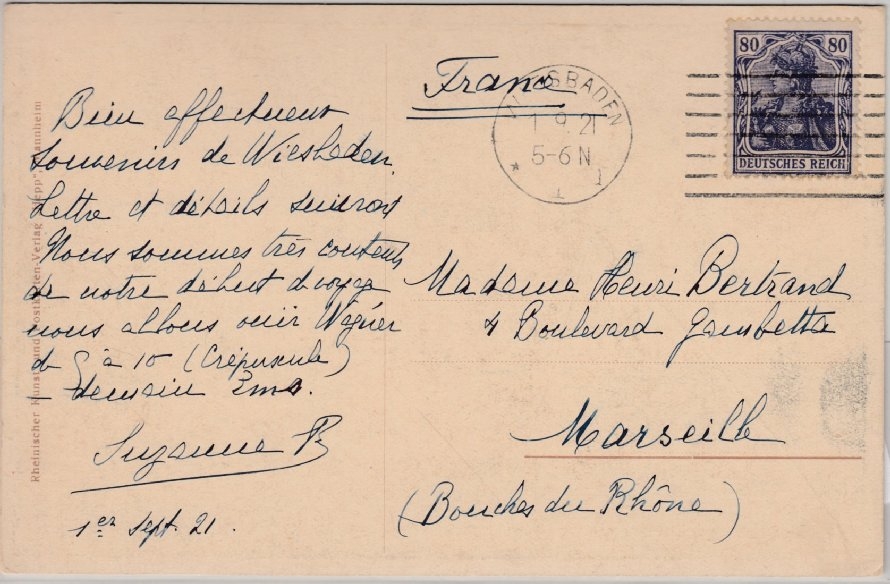 Bien affectueux
souvenirs de Wiesbaden
Lettre et détails suivront
Nous sommes très contents
de notre début de voyage
nous allons ouir Wagner
de 5 à 10 (Crépuscule)
demain
Suzanne B.
1er Sept. 21.
France
WIESBADEN
1.9.21
5-6 N
* 1 1
80 80
DEUTSCHES REICH
Madame Henri Bertrand
4 Boulevard Gambetta
Marseille
(Bouches du Rhône)
Rheinischer Kunst und Postkarten-Verlag Mannheim